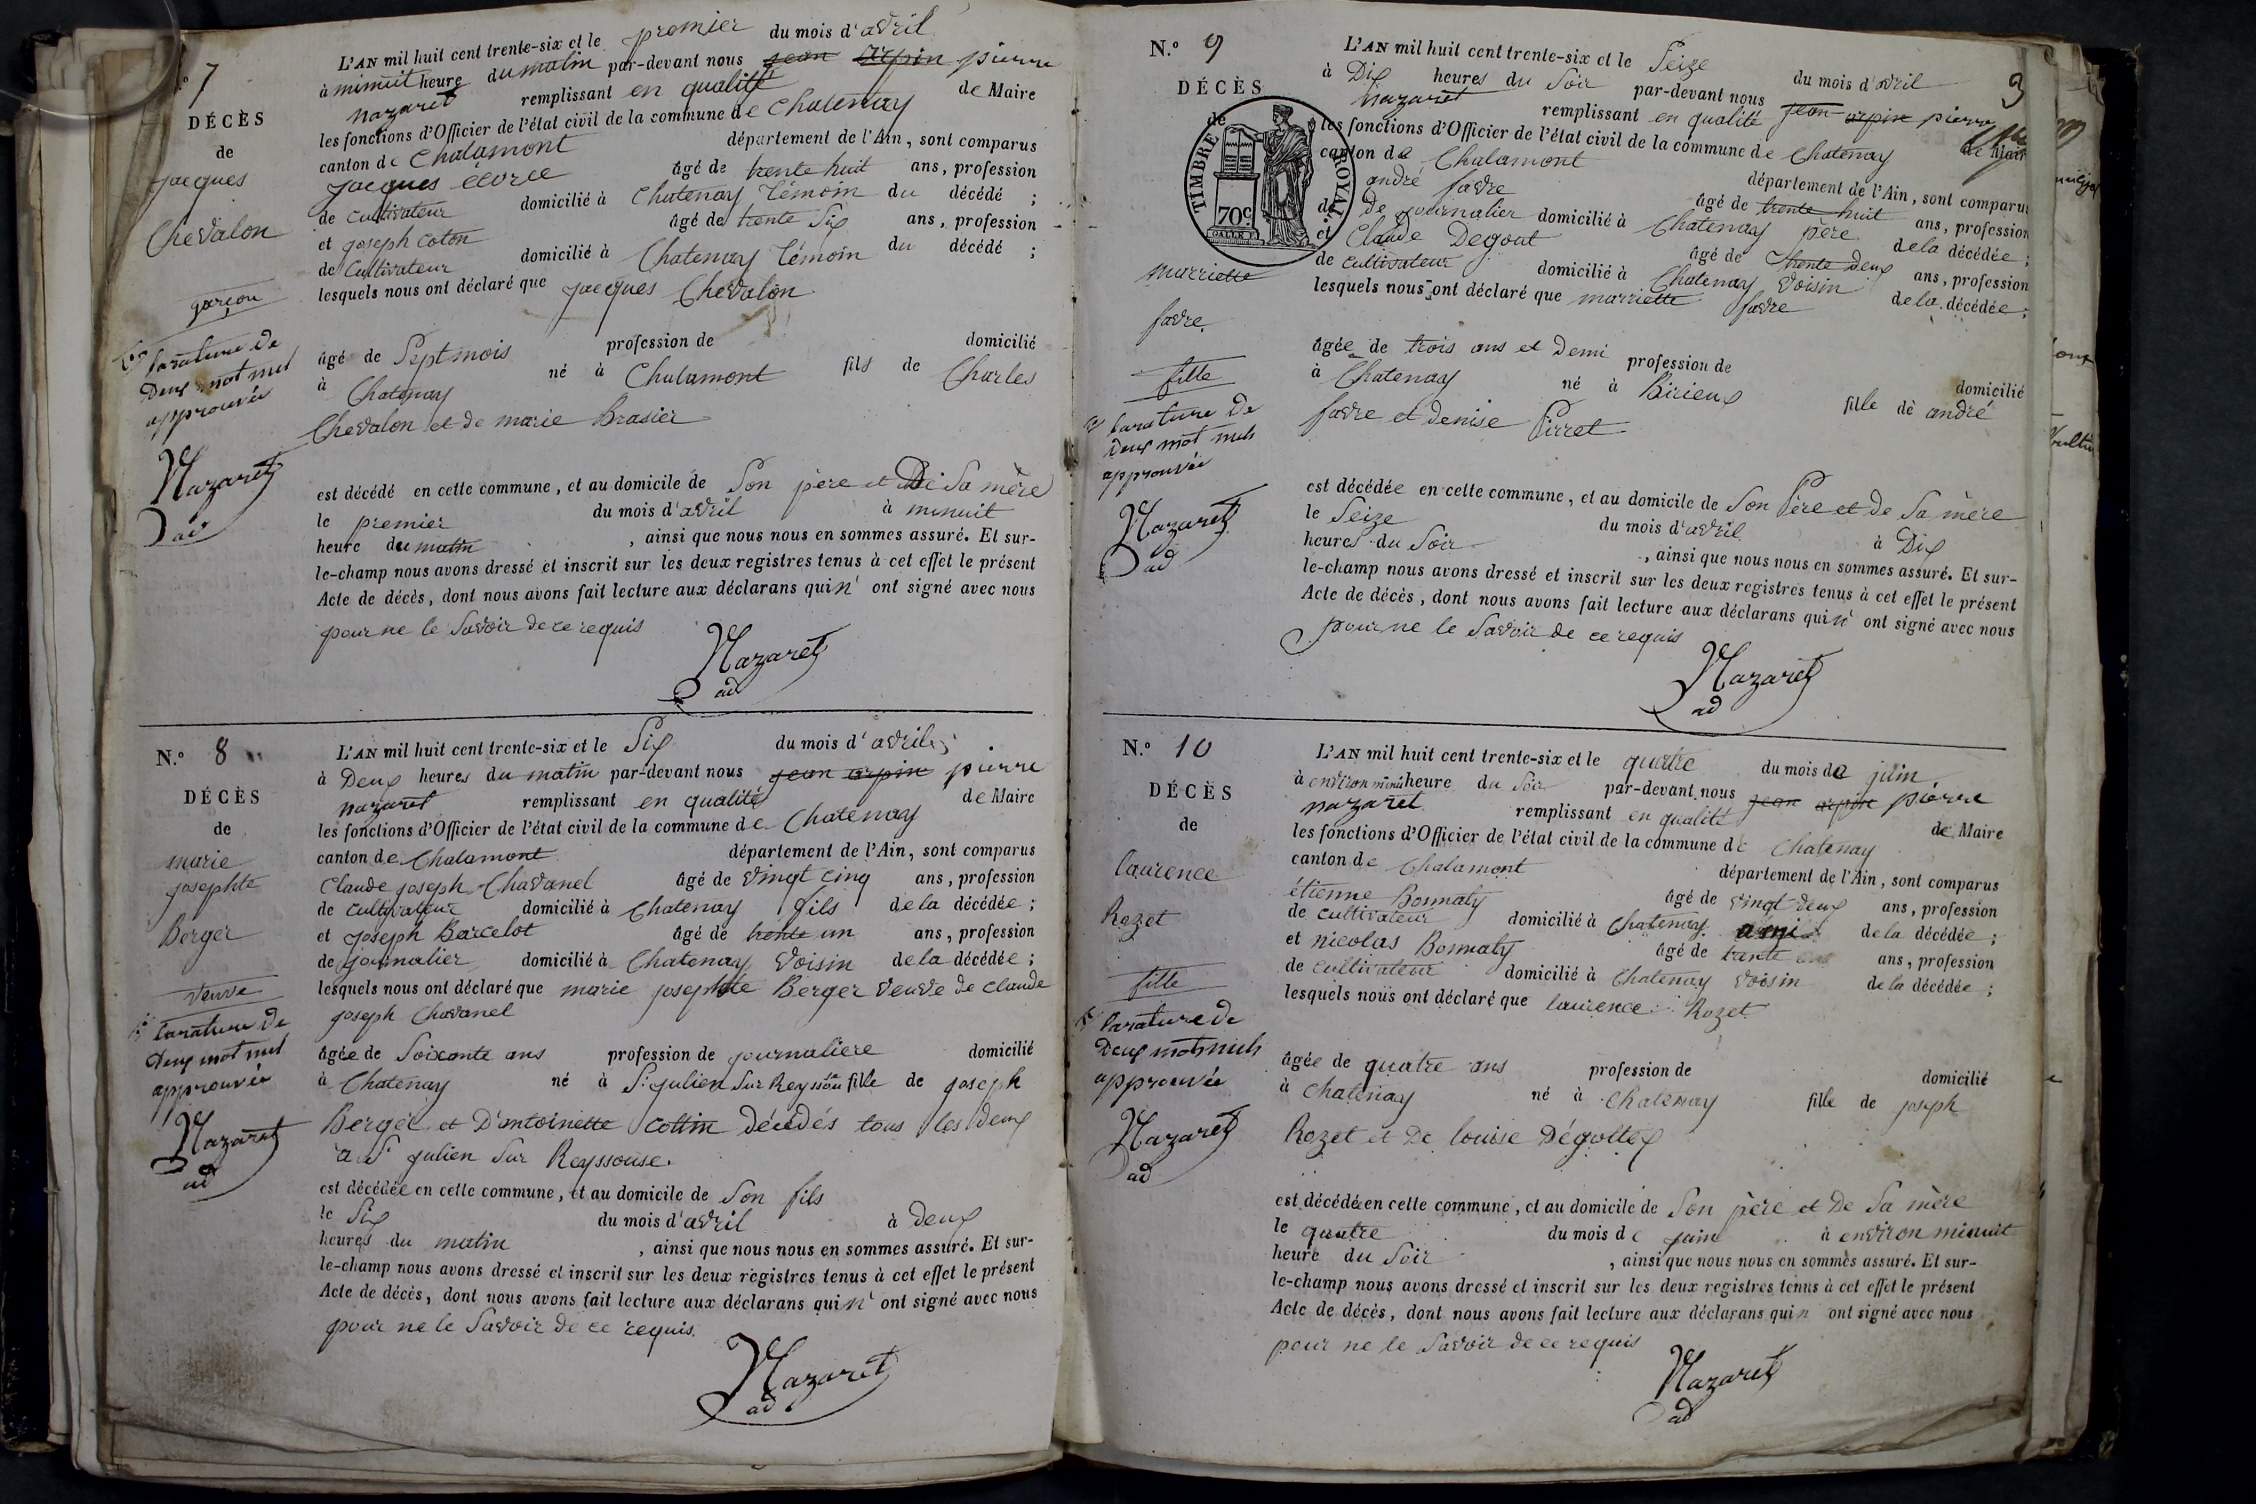 N.° 7
DÉCÈS
de
jacques
Chevalon
garçon
rature de
Deux mot nul
approuvée
Nazaret
ad
L'AN mil huit cent trente-six et le premier du mois d'avril
à minuit heure du matin par-devant nous jean arpin pierre
nazaret remplissant en qualité de Maire
les fonctions d'Officier de l'état civil de la commune de Chatenay
canton de Chalamont département de l'Ain, sont comparus
jacques âgé de trente huit ans, profession
de Cultivateur domicilié à Chatenay Témoin du décédé ;
et joseph Coton âgé de trente Six ans, profession
de Cultivateur domicilié à Chatenay Témoin du décédé ;
lesquels nous ont déclaré que jacques Chevalon
âgé de Sept mois profession de domicilié
à Chatenay né à Chalamont fils de Charles
Chevalon et de marie Brasier
est décédé en cette commune, et au domicile de Son père et De Sa mère
le premier du mois d'avril à minuit
heure du matin , ainsi que nous nous en sommes assuré. Et sur-
le-champ nous avons dressé et inscrit sur les deux registres tenus à cet effet le présent
Acte de décès, dont nous avons fait lecture aux déclarans qui n' ont signé avec nous
pour ne le Savoir de ce requis
Nazaret
ad
N.° 8
DÉCÈS
de
marie
josephte
Berger
veuve
rature de
Deux mot nul
approuvée
Nazaret
ad
L'AN mil huit cent trente-six et le Six du mois d'avril
à Deux heures du matin par-devant nous jean arpin pierre
nazaret remplissant en qualité de Maire
les fonctions d'Officier de l'état civil de la commune de Chatenay
canton de Chalamont département de l'Ain, sont comparus
Claude joseph Chavanel âgé de vingt cinq ans, profession
de cultivateur domicilié à Chatenay fils de la décédée ;
et joseph Barcelot âgé de trente un ans, profession
de journalier domicilié à Chatenay Voisin de la décédée ;
lesquels nous ont déclaré que marie josephte Berger veuve de Claude
joseph Chavanel
âgée de Soixante ans profession de journaliere domicilié
à Chatenay né à St julien Sur Reyssou fille de joseph
Berger et D'antoinette Cottin décédés tous les deux
a St julien Sur Reyssouse.
est décédée en cette commune, et au domicile de Son fils
le Six du mois d'avril à Deux
heures du matin , ainsi que nous nous en sommes assuré. Et sur-
le-champ nous avons dressé et inscrit sur les deux registres tenus à cet effet le présent
Acte de décès, dont nous avons fait lecture aux déclarans qui n' ont signé avec nous
pour ne le Savoir de ce requis.
Nazaret
ad
N.° 9
3
DÉCÈS
de
TIMBRE ROYAL
70c
marriette
favre
fille
rature de
Deux mot nuls
approuvée
Nazaret
ad
L'AN mil huit cent trente-six et le Seize du mois d'avril
à Dix heures du Soir par-devant nous jean arpin pierre
nazaret remplissant en qualité de Maire
les fonctions d'Officier de l'état civil de la commune de Chatenay
canton de Chalamont département de l'Ain, sont comparus
andré favre âgé de trente huit ans, profession
de journalier domicilié à Chatenay père de la décédée ;
et Claude Degout âgé de trente Deux ans, profession
de cultivateur domicilié à Chatenay Voisin de la décédée ;
lesquels nous ont déclaré que marriette favre
âgée de trois ans et Demi profession de domicilié
à Chatenay né à Birieux fille de andré
favre et denise Pirret
est décédée en cette commune, et au domicile de Son Père et de Sa mère
le Seize du mois d'avril à Dix
heures du Soir , ainsi que nous nous en sommes assuré. Et sur-
le-champ nous avons dressé et inscrit sur les deux registres tenus à cet effet le présent
Acte de décès, dont nous avons fait lecture aux déclarans qui n' ont signé avec nous
pour ne le Savoir de ce requis
Nazaret
ad
N.° 10
DÉCÈS
de
laurence
Rozet
fille
rature de
Deux mots nuls
approuvée
Nazaret
ad
L'AN mil huit cent trente-six et le quatre du mois de juin
à environ minuit heure du Soir par-devant nous jean arpin pierre
nazaret remplissant en qualité de Maire
les fonctions d'Officier de l'état civil de la commune de Chatenay
canton de Chalamont département de l'Ain, sont comparus
étienne Bonnaty âgé de vingt deux ans, profession
de cultivateur domicilié à Chatenay ami de la décédée ;
et nicolas Bonnaty âgé de trente ans, profession
de cultivateur domicilié à Chatenay voisin de la décédée ;
lesquels nous ont déclaré que laurence Rozet
âgée de quatre ans profession de domicilié
à chatenay né à chatenay fille de joseph
Rozet et De louise Dégottex
est décédée en cette commune, et au domicile de Son père et De Sa mère
le quatre du mois de juin à environ minuit
heure du Soir , ainsi que nous nous en sommes assuré. Et sur-
le-champ nous avons dressé et inscrit sur les deux registres tenus à cet effet le présent
Acte de décès, dont nous avons fait lecture aux déclarans qui n ont signé avec nous
pour ne le Savoir de ce requis
Nazaret
ad